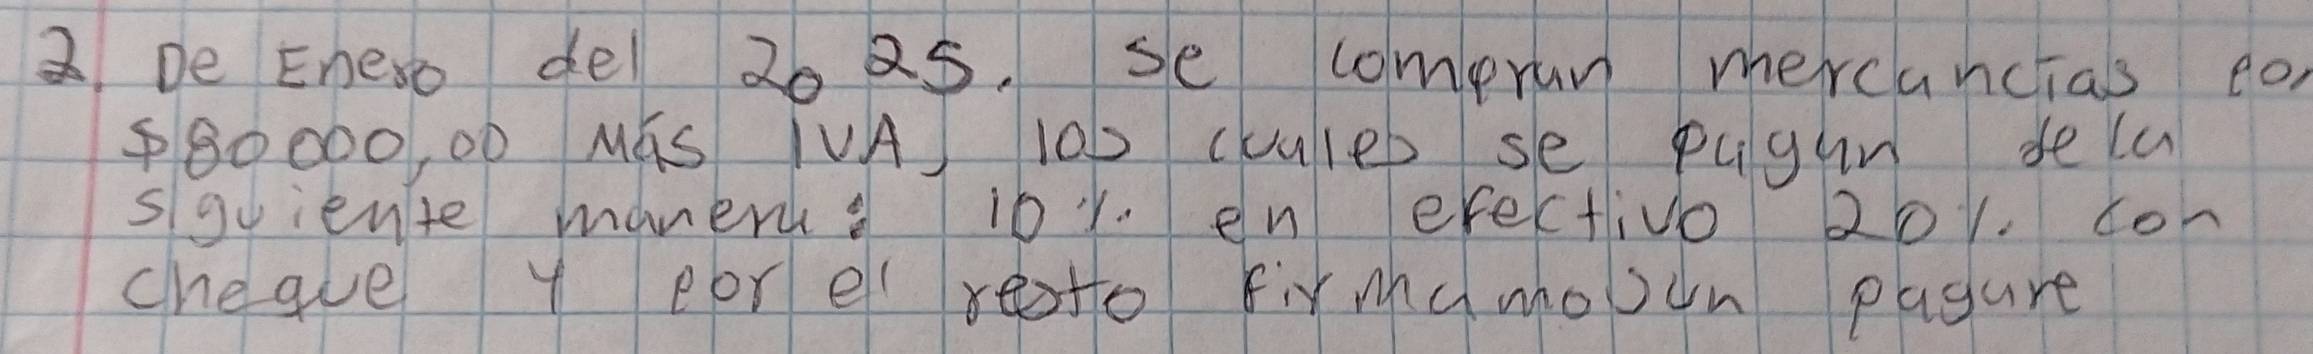 2. De Enero del 2025. se compran mercancias por
$80000,00 Más IVA, los cuales se pagan de la
siguiente manera: 10% en efectivo 20% con
cheque y por el resto firmamos un pagare